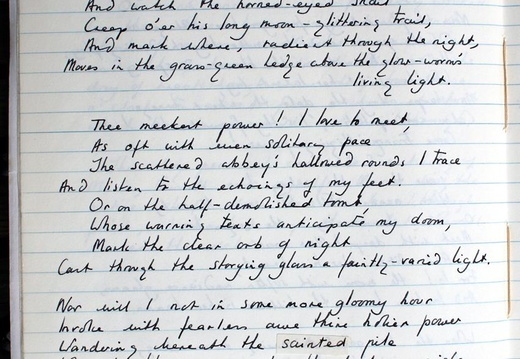 And watch the horned-eyed snail
Creep o'er his long moon-glittering trail,
And mark where, radiant through the night,
Moves in the grass-green hedge above the glow-worm's
living light.
Thee meekest power! I love to meet,
As oft with even solitary pace
The scattered abbey's hallowed rounds I trace
And listen to the echoings of my feet.
Or on the half-demolished tomb,
Whose warning texts anticipate my doom,
Mark the clear orb of night
Cast through the storying glass a faintly-varied light.
Nor will I not in some more gloomy hour
Invoke with fearless awe thine holier power
Wandering beneath the sainted pile